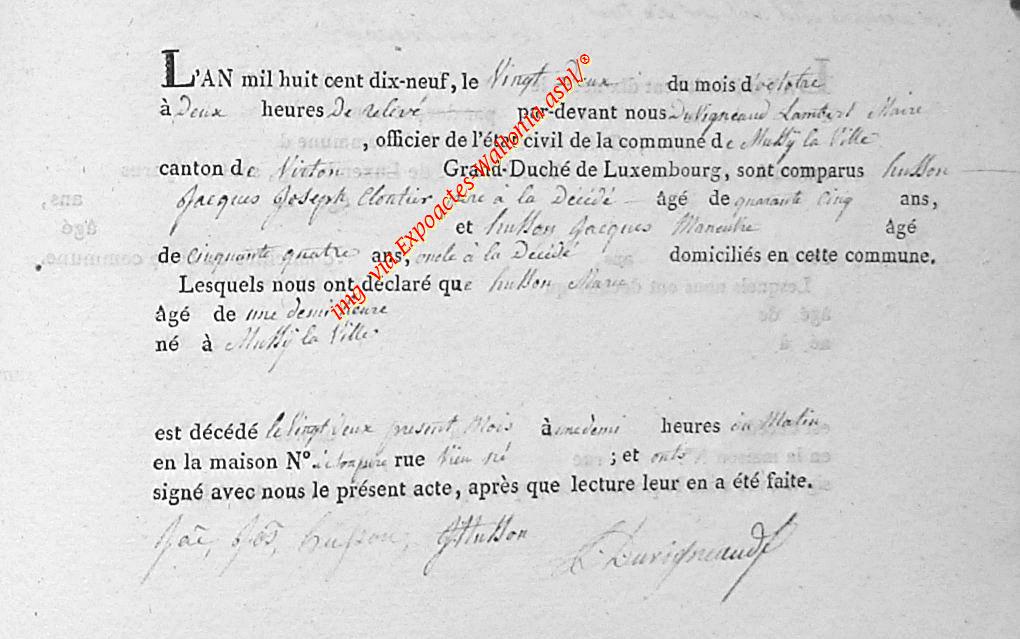 L'AN mil huit cent dix-neuf, le Vingt Deux du mois d'octobre
à Deux heures De relevé par-devant nous Duvigneaud Lambert Maire
, officier de l'état civil de la commune de Mussÿ la Ville
canton de Virton Grand-Duché de Luxembourg, sont comparus husson
Jacques Joseph Cloutier père à la Décédé âgé de quarante Cinq ans,
et husson Jacques Maneuvre âgé
de Cinquante quatre ans, oncle à la Décédé domiciliés en cette commune.
Lesquels nous ont déclaré que husson Marie
âgé de une demi heure
né à Mussÿ la Ville
est décédé le Vingt deux présent Mois à une demi heures du Matin
en la maison N° à son père rue ; et onts
signé avec nous le présent acte, après que lecture leur en a été faite.
Jac, Jos, husson, JHusson
L. Duvigneaud
img via Expoactes-Wallonia.asbl/®